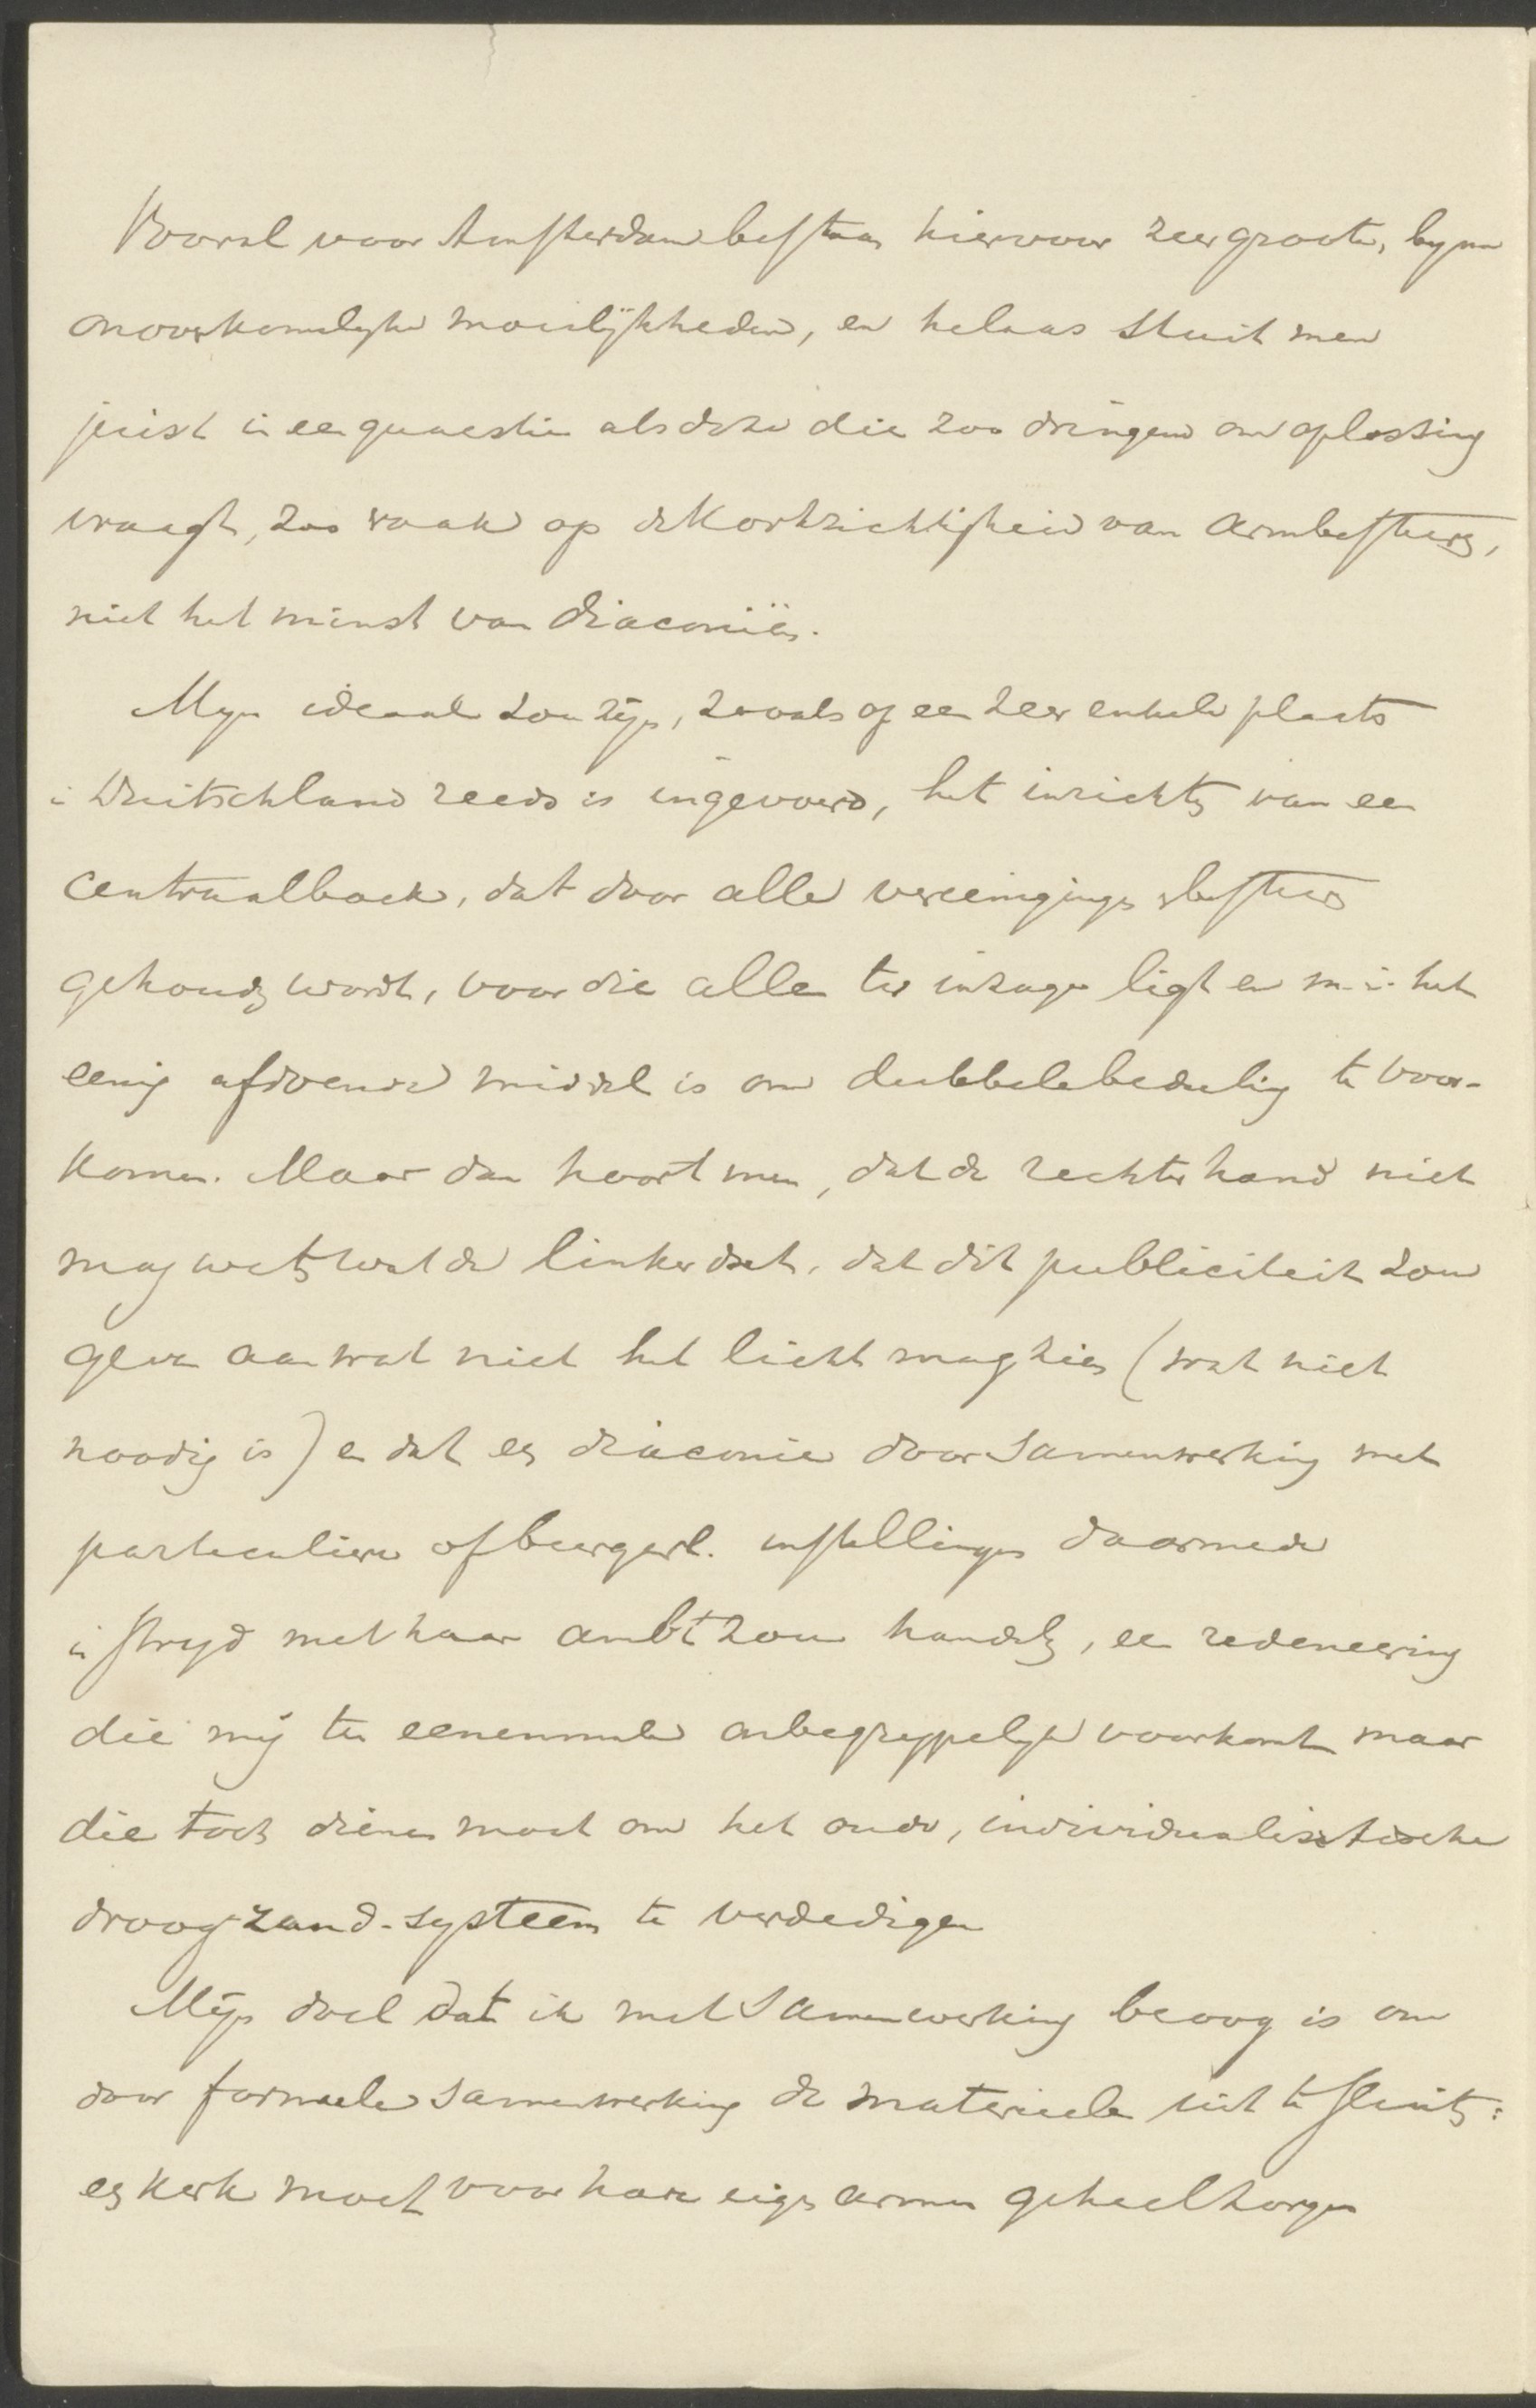 Vooral voor Amsterdam bestaan hiervoor zeer groote, byna
onoverkomelyke moeilijkheden, en helaas stuit men
juist in een quaestie als deze die zoo dringend om oplossing
vraagt, zoo vaak op de kortzichtigheid van armbesturen,
niet het minst van diaconiën.
Myn ideaal zou zijn, zooals op een zeer enkele plaats
in Duitschland reeds is ingevoerd, het inrichten van een
Centraalboek, dat door alle vereenigingen & besturen
gehouden wordt, voor die alle ter inzage ligt en m.i. het
eenig afdoende middel is om dubbele bedeeling te voor-
komen. Maar dan hoort men, dat de rechterhand niet
mag weten wat de linker doet, dat dit publiciteit zou
geven aan wat niet het licht mag zien (wat niet
noodig is) en dat een diaconie door samenwerking met
particuliere of burgerl. instellingen daarmede
in stryd met haar ambt zou handelen, een redeneering
die mij ten eenenmale onbegrypelyk voorkomt maar
die toch dienen moet om het oude, individualistische
droog-zand-systeem te verdedigen
Mijn doel dat ik met samenwerking beoog is om
door formeele samenwerking de materieele uit te sluiten:
een kerk moet voor hare eigen armen geheel zorgen